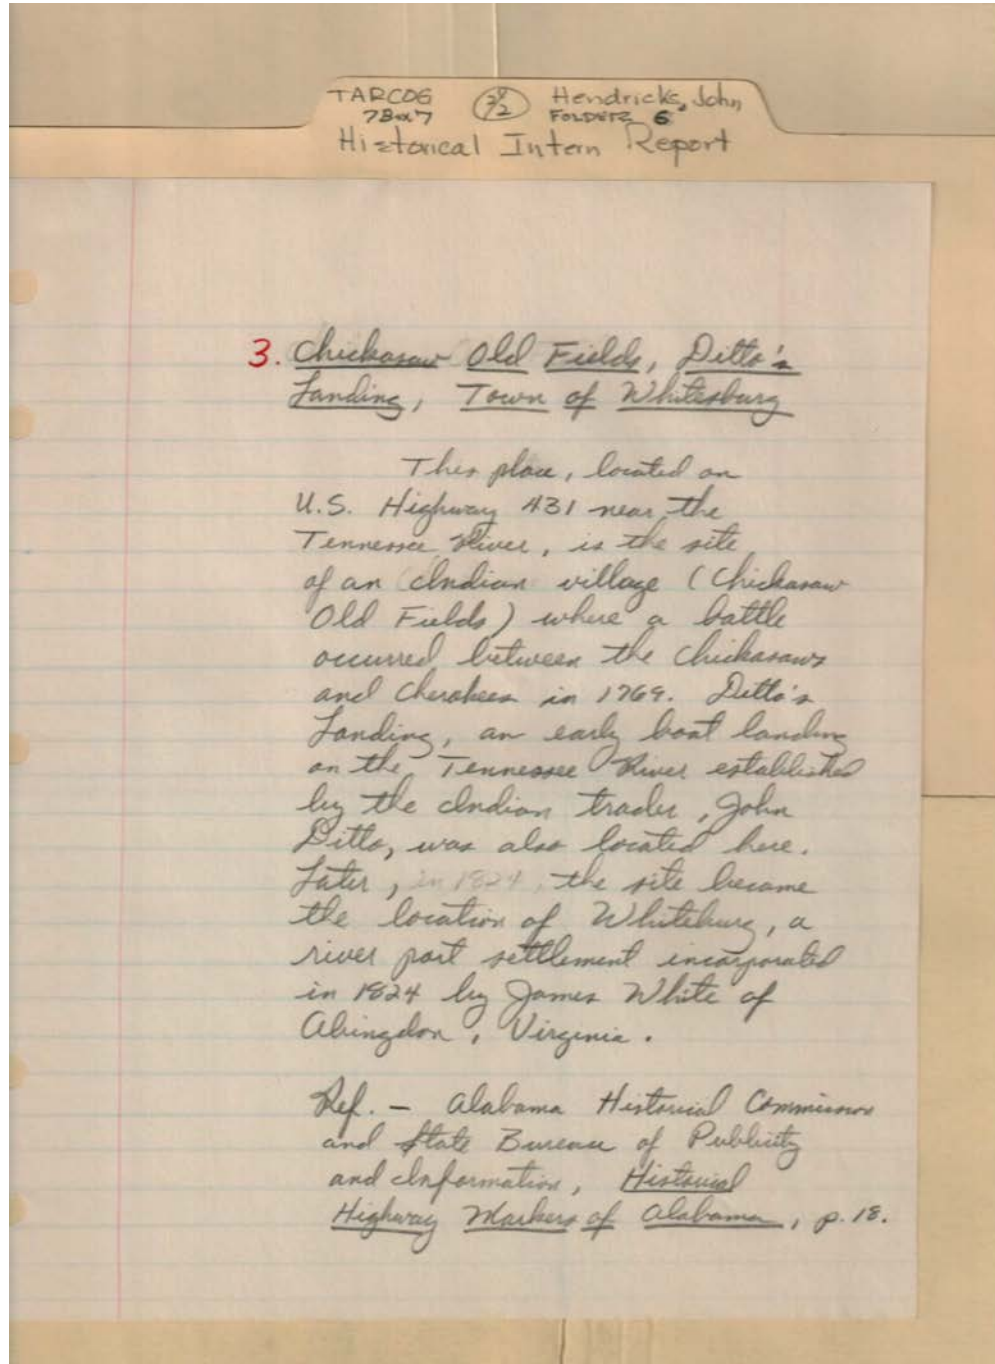 TARCOG 2/2 Hendricks, John
7Box7 FOLDER 6
Historical Intern Report
3. Chickasaw Old Fields, Ditto's
Landing, Town of Whitesburg
This place, located on
U.S. Highway 431 near the
Tennessee River, is the site
of an Indian village (Chickasaw
Old Fields) where a battle
occurred between the Chickasaws
and Cherokees in 1769. Ditto's
Landing, an early boat landing
on the Tennessee River established
by the Indian trader, John
Ditto, was also located here.
Later, in 1824, the site became
the location of Whiteburg, a
river port settlement incorporated
in 1824 by James White of
Abingdon, Virginia.
Ref. - Alabama Historical Commission
and State Bureau of Publicity
and Information, Historical
Highway Markers of Alabama, p. 18.